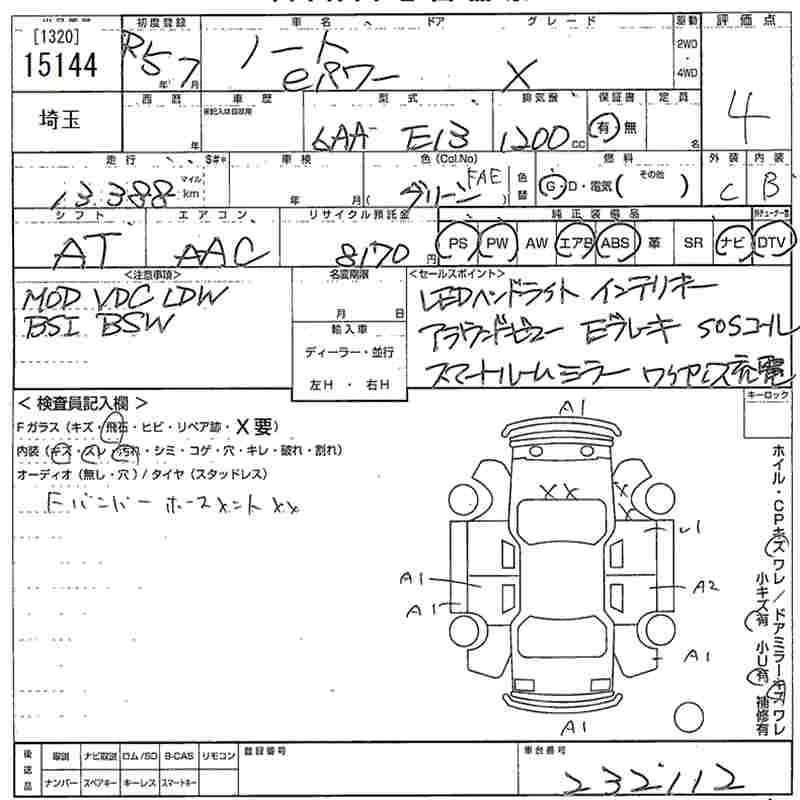 [1320]
15144
埼玉
初度登録
R5 7
年 月
車名 ドア グレード
ノート
eパワー X
駆動
2WD
・
4WD
評価点
4
西暦
年
車歴
型式
6AA E13
排気量
1200 cc
保証書
有 無
定員
名
走行
13,388
マイル
km
車検
年 月
色 (Col.No)
グリーン FAE
色替
燃料
G・D・電気( その他 )
外装
C
内装
B
シフト
AT
エアコン
AAC
リサイクル預託金
8170 円
純正装備品
PS PW AW エアB ABS 革 SR ナビ DTV
<注意事項>
MOD VDC LDW
BSI BSW
名変期限
月 日
輸入車
ディーラー・並行
左H ・ 右H
<セールスポイント>
LEDヘッドライト インテリキー
アラウンドビュー Eブレーキ SOSコール
スマートルームミラー ワイアレス充電
<検査員記入欄>
Fガラス (キズ・飛石・ヒビ・リペア跡・X要)
内装 (キズ・スレ・汚れ・シミ・コゲ・穴・キレ・破れ・割れ)
オーディオ (無し・穴) / タイヤ (スタッドレス)
Fバンパー ホースメント XX
キーロック
A1
X X
X
X
U1
A1
A2
A1
A1
A1
ホイル・CPキズワレ/ドアミラーキズワレ
小キズ有 小U有 補修有
後送品
取説 ナビ取説 ロム/SD B-CAS リモコン
ナンバー スペアキー キーレス スマートキー
登録番号
車台番号
232112